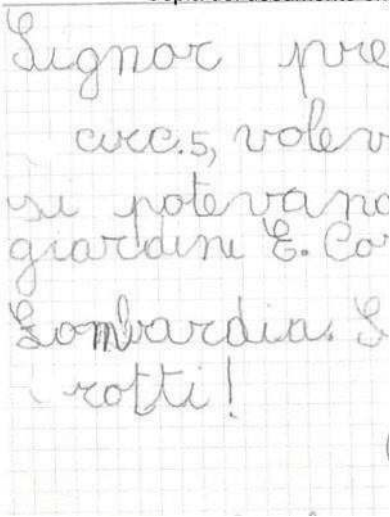 Signor pre
circ.5, volev
si potevano
giardini E. Co
Lombardia. S
rotti!